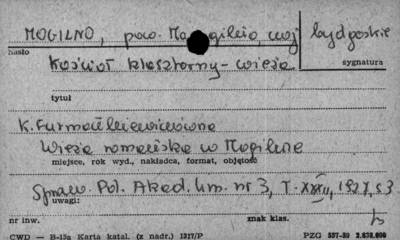 MOGILNO, pow. Mogilno, woj bydgoskie
hasło
sygnatura
Kościół klasztorny - wieża
tytuł
K. Furmankiewiczówna
Wieża romańska w Mogilnie
miejsce, rok wyd., nakładca, format, objętość
Spraw. Pol. Akad. Um. nr 3, T. XXXII, 1927, s 3
uwagi:
nr inw.
znak klas.
CWD — B-13a Karta katal. (z nadr.) 1317/P
PZG 557-59 2.830.000